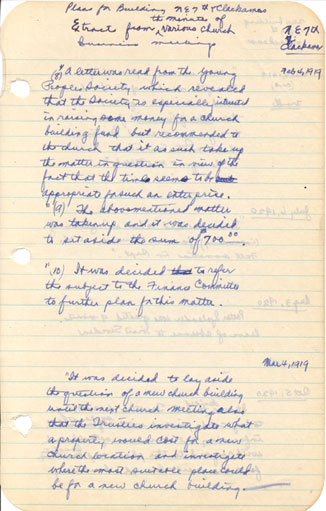 Plans for Building N E 7 & Clackamas
the minutes of
Extract from Various Church
Business meetings
N E 7th
Clackamas
Feb 4, 1919
"8) A letter was read from the Young
Peoples Society, which revealed
that the Society is especially intrested
in raising some money for a church
building fund but recommended to
the church that it as such take up
the matter in question in view of the
fact that the times seems to be
appropriat for such an enterprise.
"(9) The above mentioned matter
was taken up and it was decided
to set aside the sum of $700.00.
"10) It was decided that to refer
the subject to the Finance Committe
to further plan for this matter.
Mar 4, 1919
"It was decided to lay aside
the question of a new church building
until the next church meeting also
that the Trustees investigate what
a property would cost for a new
church location and investigate
where the most suiteable place could
be for a new church building.